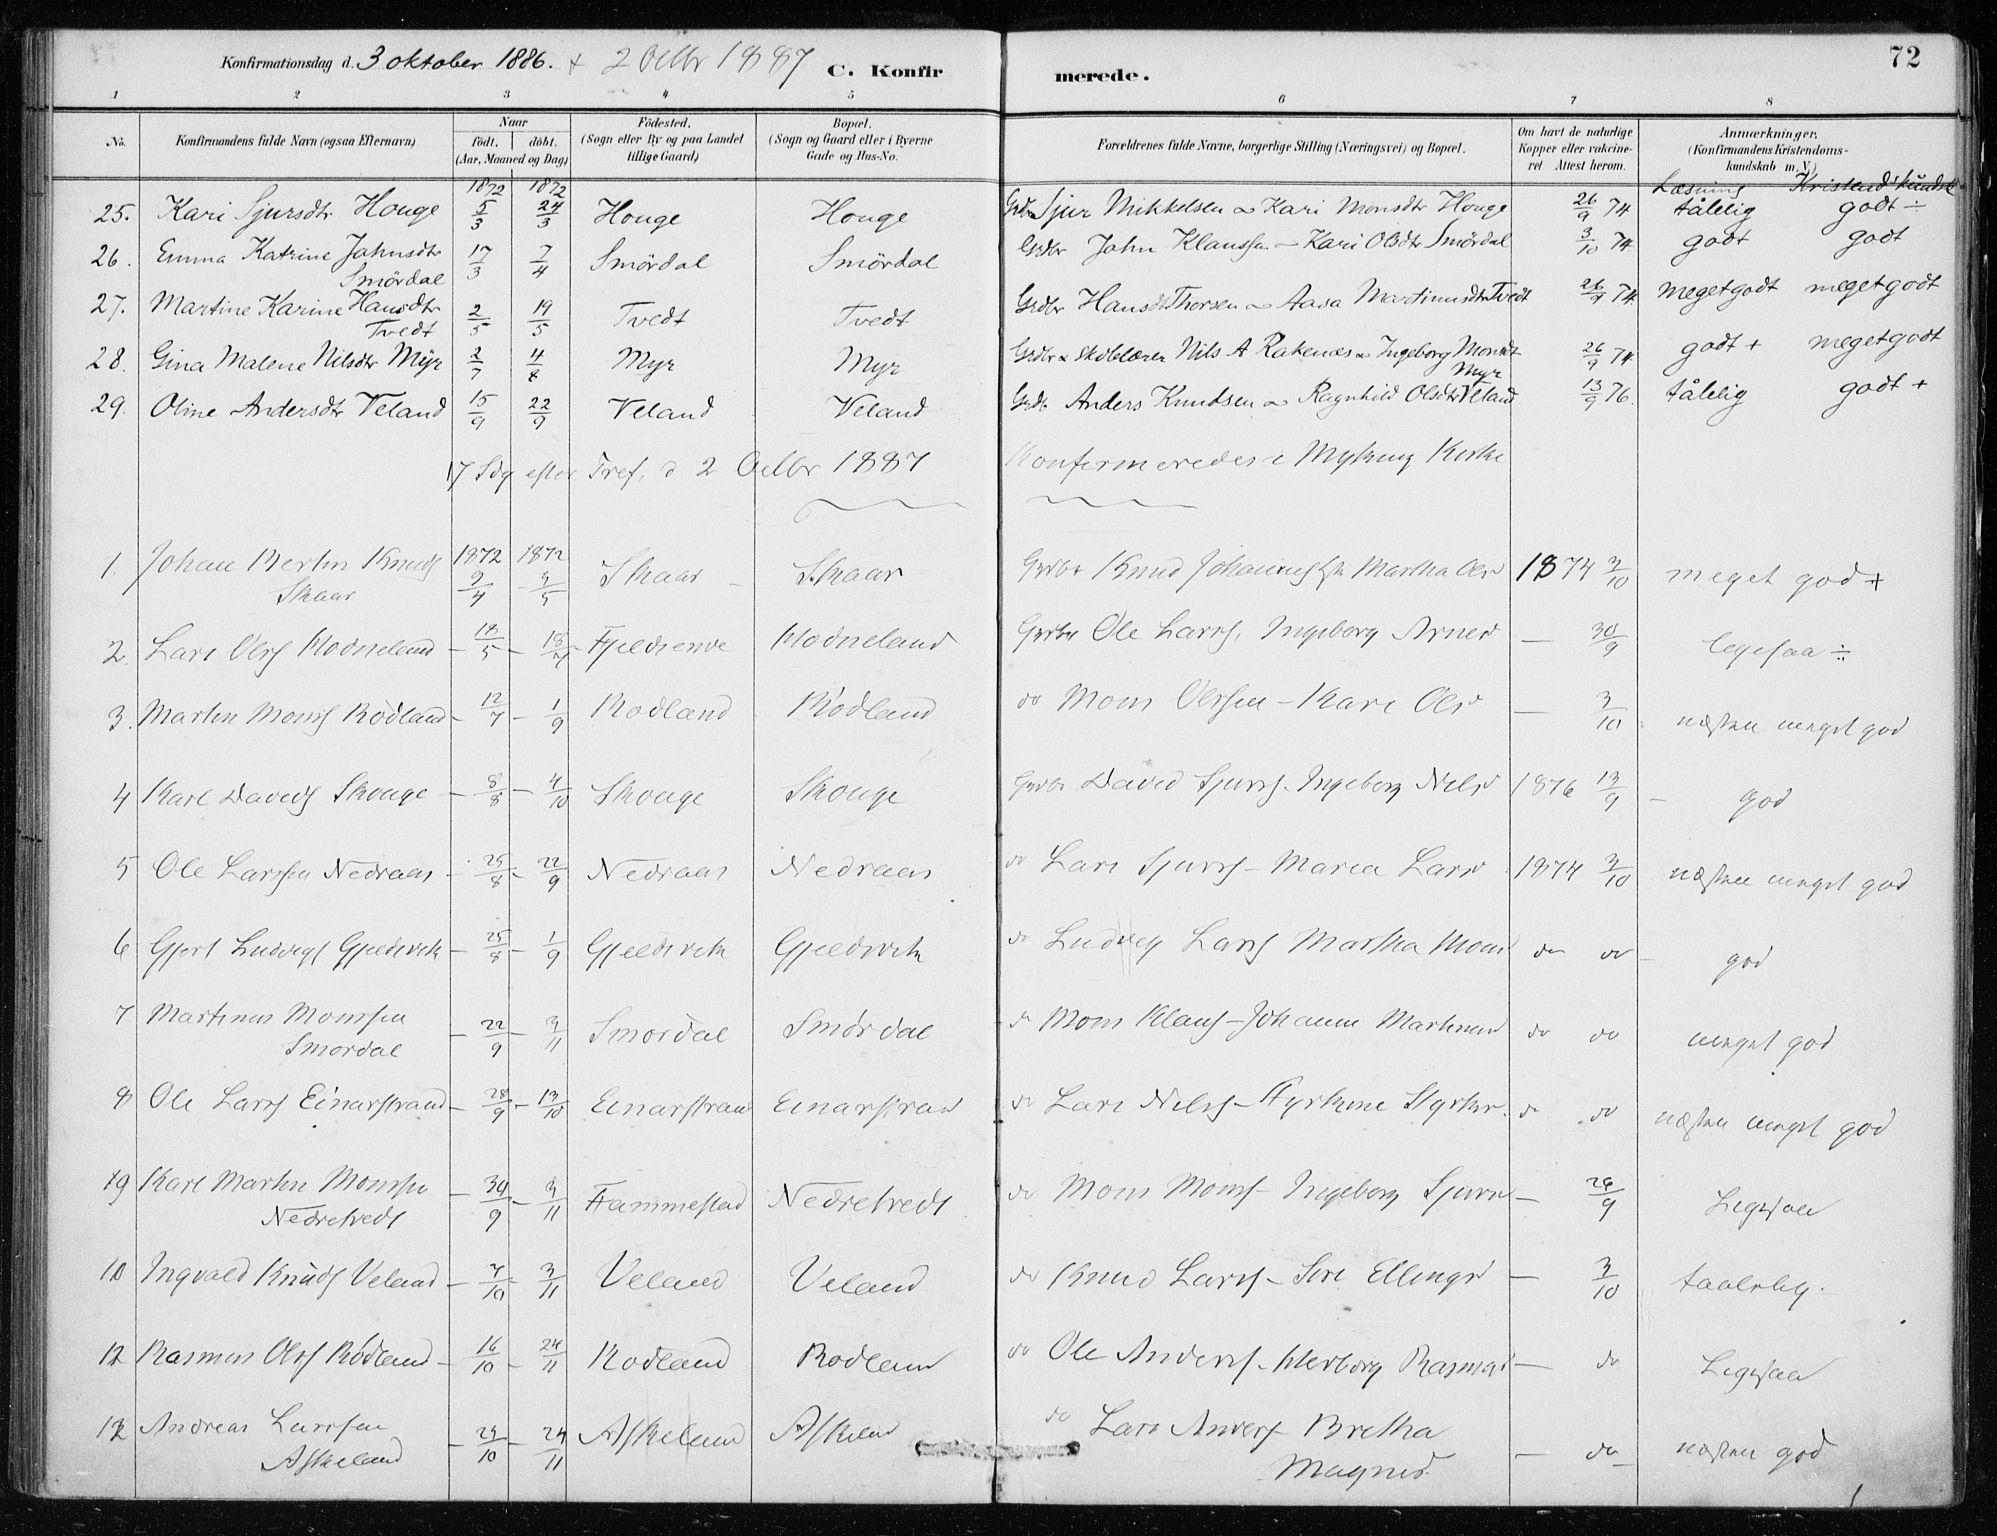 Konfirmationsdag d. 3 oktober 1886. + 2 Octbr 1887 C. Konfirmerede. 72
1 2 3 4 5 6 7 8
No. Konfirmandens fulde Navn (ogsaa Efternavn) Naar födt. döbt. (Aar, Maaned og Dag) Födested. (Sogn eller By og paa Landet tillige Gaard) Bopæl. (Sogn og Gaard eller i Byerne Gade og Hus-No. Forældrenes fulde Navne, borgerlige Stilling (Næringsvei) og Bopæl. Om havt de naturlige Kopper eller vakcineret Attest herom. Anmærkninger. (Konfirmandens Kristendomskundskab m. V.)
1872 1872 Læsning Kristend.skundsk.
25. Kari Sjursdtr Houge 5/3 24/3 Houge Houge Grdbr Sjur Mikkelsen & Kari Monsdtr Houge 26/9 74 tålelig godt ÷
26. Emma Katrine Jahnsdtr Smördal 17/3 7/4 Smördal Smördal Grdbr Jahn Klaussen – Kari Olsdtr Smördal 3/10 74 godt godt
27. Martine Karine Hansdtr Tvedt 2/5 19/5 Tvedt Tvedt Grdbr Hans Thorsen & Aasa Martinusdtr Tvedt 26/9 74 meget godt meget godt
28. Gina Malene Nilsdtr Myr 2/7 4/8 Myr Myr Grdbr & Skolelærer Nils A Rakenæs & Ingeborg Monsdt Myr 26/9 74 godt + meget godt
29. Oline Andersdtr Veland 15/9 22/9 Veland Veland Grdb Anders Knudsen & Ragnhild Olsdtr Veland 13/9 76. tålelig godt +
17 Sdg efter Tref, d 2 Octbr 1887 Konfirmeredes i Myking Kirke
1. Johan Bertin Knuds Skaar 1872 9/4 1872 3/5 Skaar – Skaar Grdbr Knud Johannes Martha Olsd 1874 3/10 meget god +
2. Lars Olss Kodneland – 18/5 – Fjeldsende Kodneland Grdbr Ole Larss, Ingeborg Arnesd — 30/9 ligesaa ÷
3. Martin Monss Rödland – 12/7 – 1/9 Rodland Rödland do Mons Olssen – Kari Olsd — 3/10 næsten meget god
4 Karl Davids Skouge – 8/8 – 4/10 Skouge Skouge Grdbr David Sjurss – Ingeborg Nilsd 1876 13/9 – god
5 Ole Larssen Nedraas – 25/8 – 22/9 Nedraas Nedraas do Lars Sjurss – Maria Larsd 1874 3/10 næsten meget god
6 Gjert Ludvigs Gjeldsvik – 25/8 – 1/9 Gjeldsvik Gjeldsvik do Ludvig Larss Martha Monsd do do – god
7 Martinus Monssen Smordal – 22/9 – 3/11 Smordal Smördal do Mons Klaus – Johanne Martinusd do do meget god
8 Ole Larss Einarstrand – 28/9 – 13/10 Einarstrand Einarstrand do Lars Nilss – Styrkine Styrks. do do næsten meget god
9 Karl Martin Monssen Nedretvedt – 30/9 – 3/11 Fammestad Nedretvedt do Mons Monss – Ingeborg Sjursd – 26/9 Ligesaa
10 Ingvald Knuds Veland – 7/10 – 3/11 Veland Veland do Knud Larss – Siri Ellingsd — 3/10 taalelig.
Rasmus Olss Rödland – 16/10 – 24/11 Rodland Rodland do Ole Anderss – Herborg Rasmusd — do Ligesaa
12 Andreas Larssen Askeland – /10 – 24/11 Askeland Askeland do Lars Anders Bretha Magnesd. – do næsten god